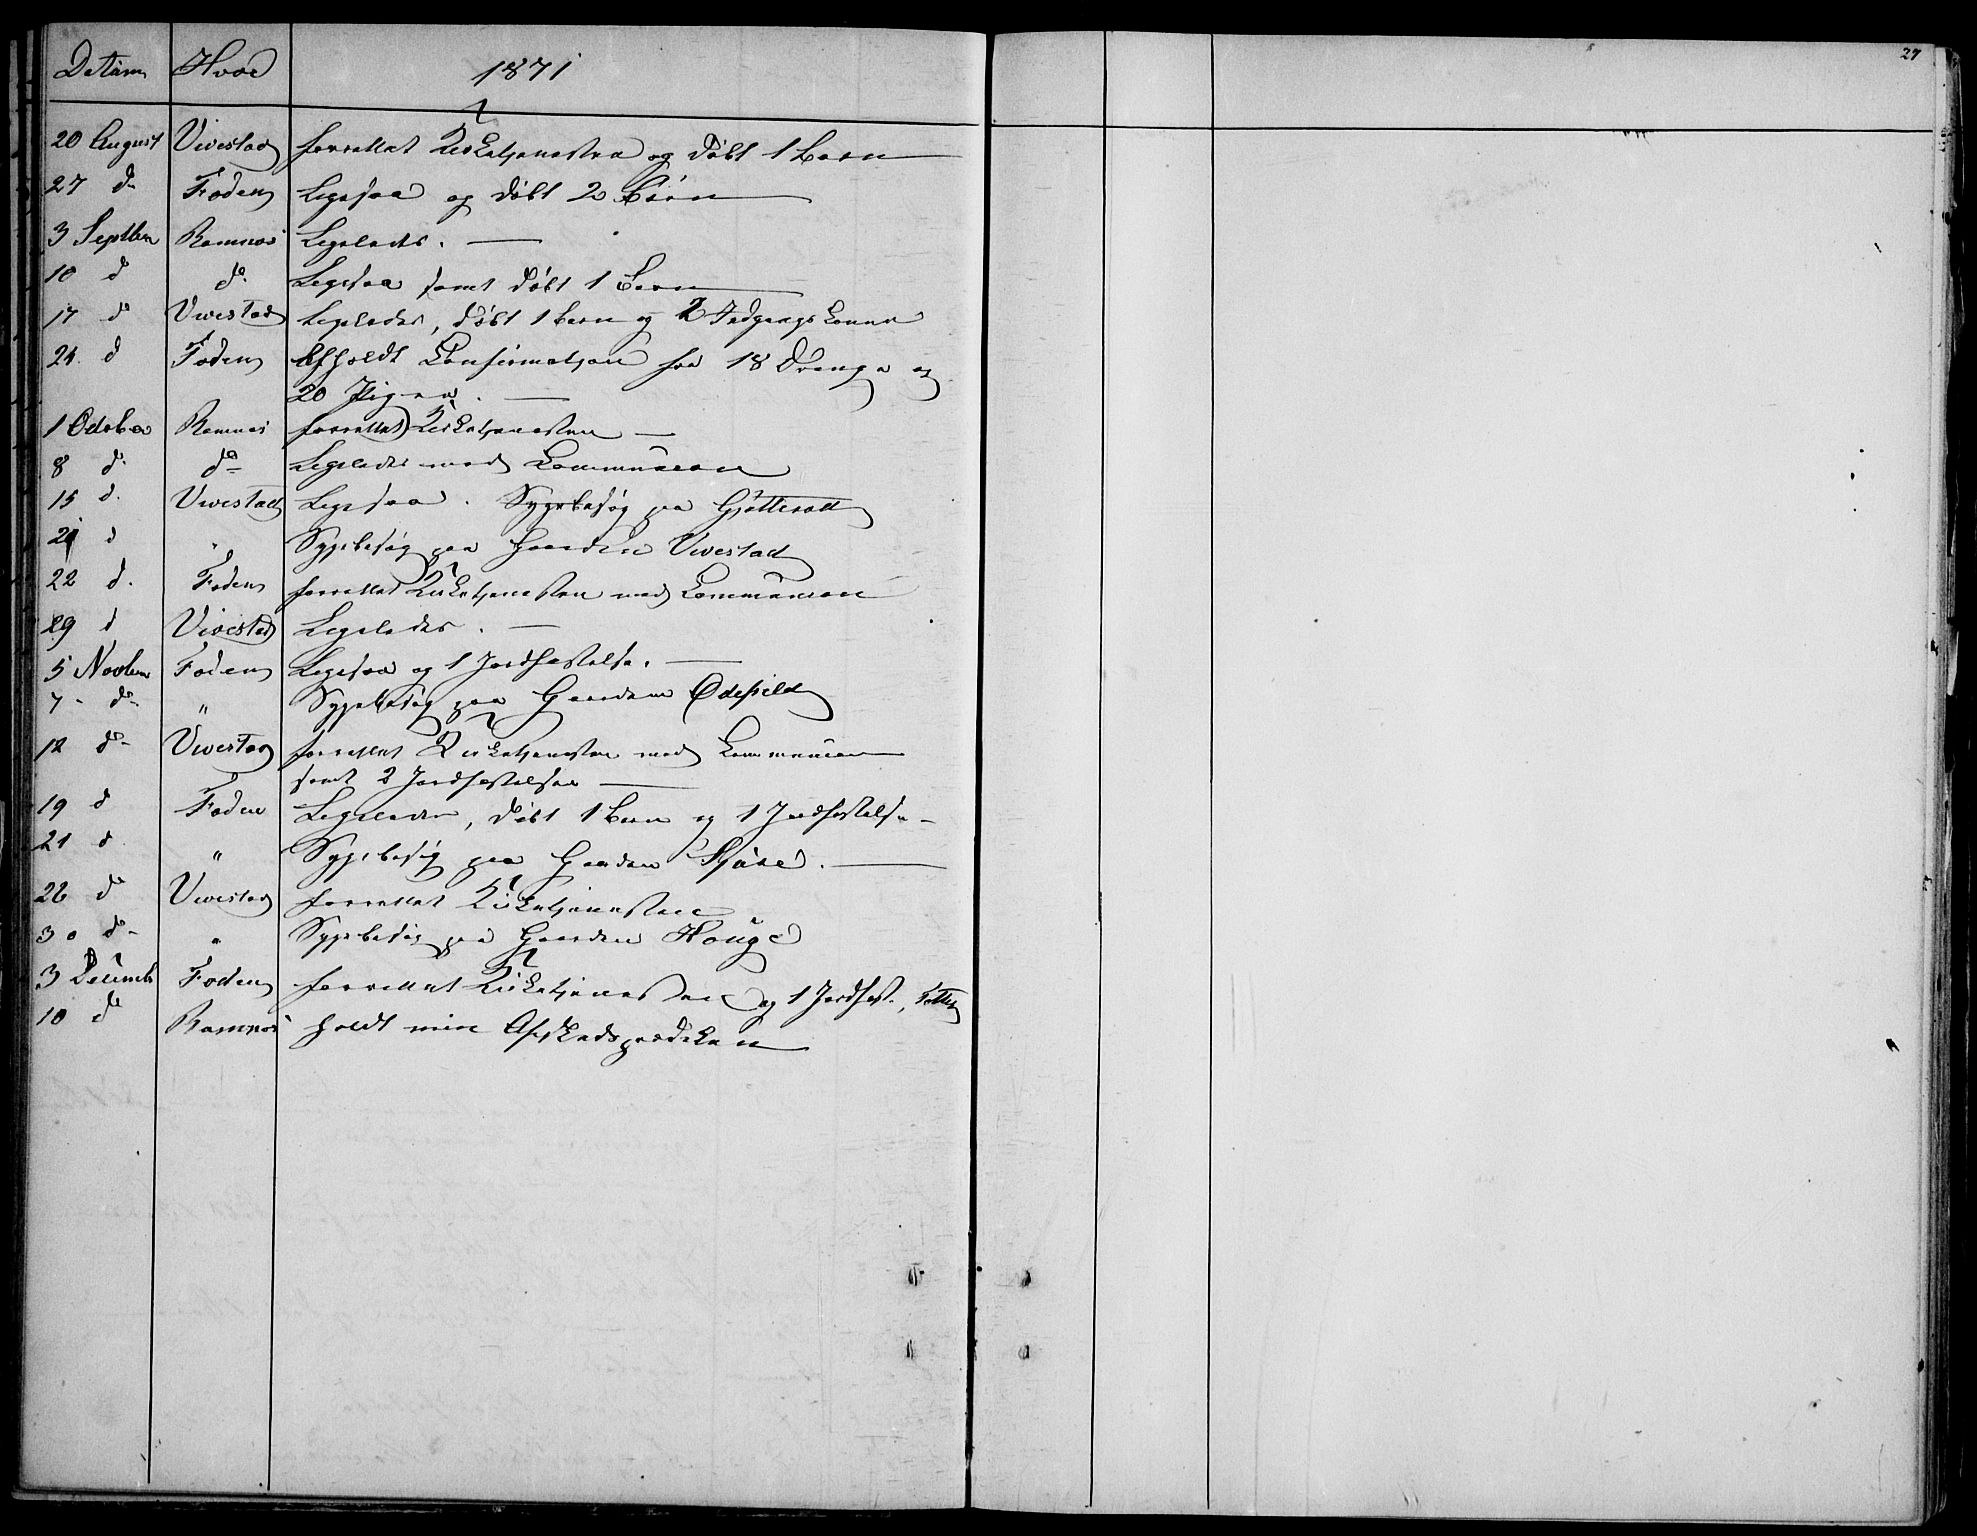 Datum Hvor 1871
20 August Vivestad forrettet Kirketjenesten og døbt 1 Barn
27 do Foden Ligesaa og døbt 2 Børn
3 Septbr Ramnæs Ligeledes.
10 d do Ligesaa samt døbt 1 Barn
17 d Vivestad Ligeledes, døbt 1 Barn og 2 Indgangskoner
24. d Foden Afholdt Confirmatjon for 18 Drenge og
20 Piger.
1 October Ramnæs forrettet Kirketjenesten
8 d. do Ligeledes med Communion
15 d. Vivestad Ligesaa. Sygebesøg paa
21 d " Sygebesøg paa Gaarden Vivestad
22 d. Foden forrettet Kirketjenesten med Communion
29 d Vivestad Ligeledes.
5 Novbr Foden Ligesaa og 1 Jordfæstelse.
7 - do " Sygebesøg paa Gaarden
12 do Vivestad forrettet Kirketjenesten med Communion
samt 2 Jordfæstelser
19 d Foden Ligeledes, døbt 1 Barn og 1 Jordfæstelse
21 d " Sygebesøg paa Gaarden
26 do Vivestad forrettet Kirketjenesten
30 do " Sygebesøg paa Gaarden Houge
3 Decemb Foden forrettet Kirketjenesten og 1 Jordfæst.,
10 do Ramnæs holdt min Afskedspræken
27